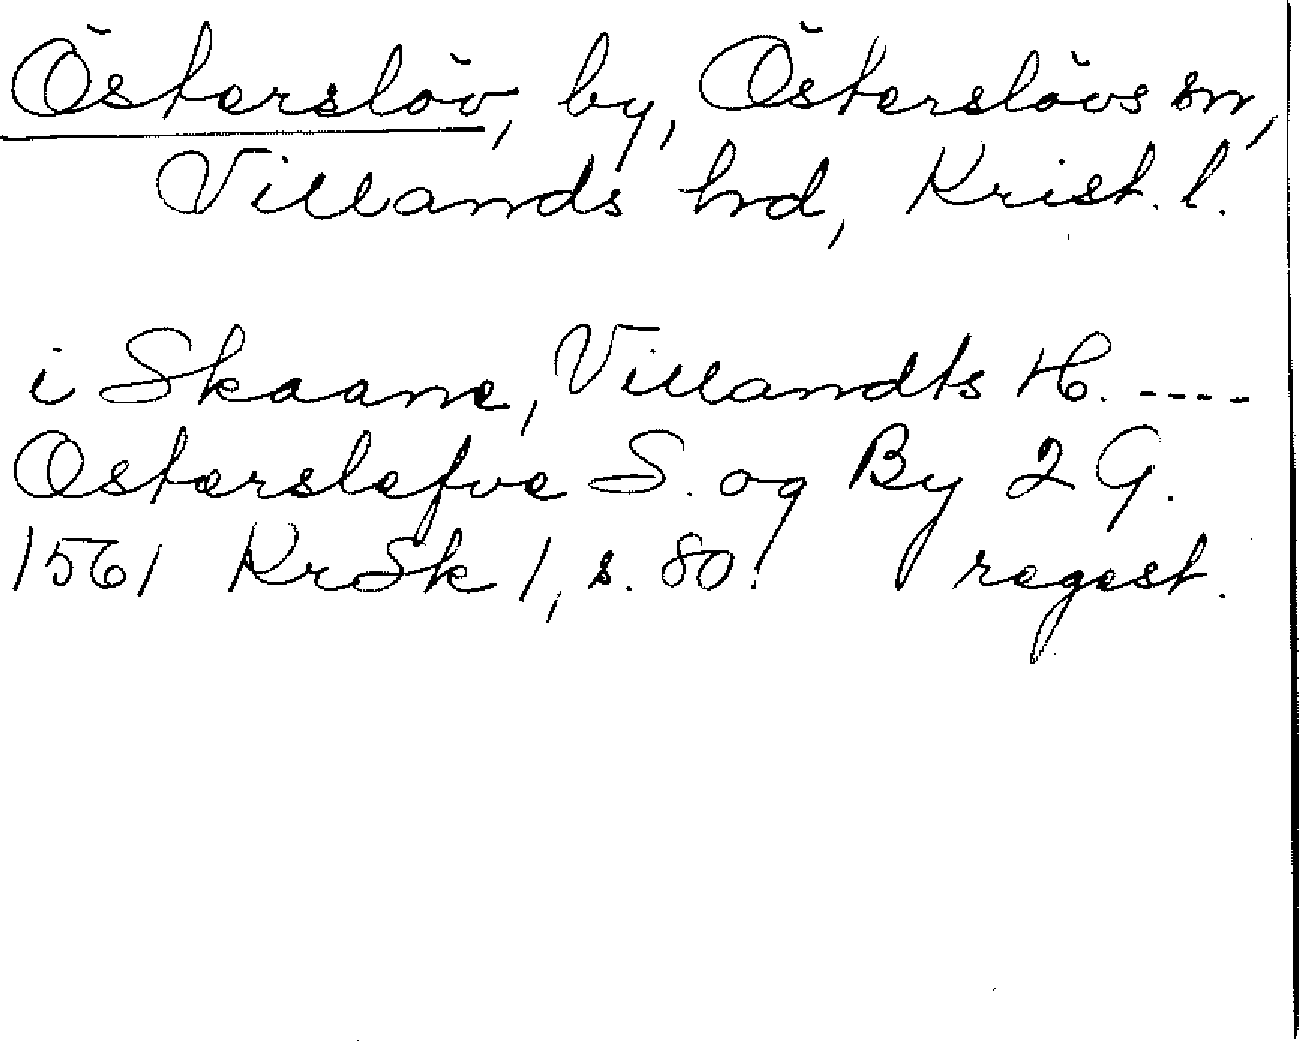 Österslöv, by, Österslövs sn,
Villands hrd, Krist. l.
i Skaane, Villandts H. ----
Osterslefve S. og By 2 G.
1561 KrSk 1, s. 80! regest.